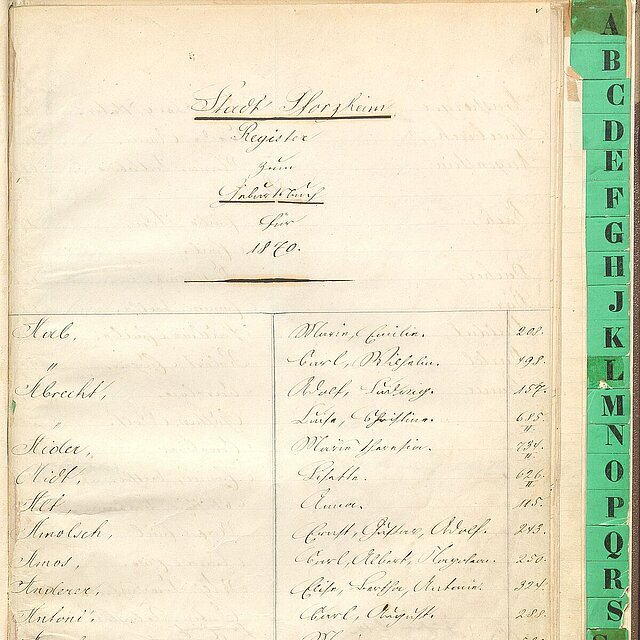 Stadt Pforzheim
Register
zum
Geburtsbuch
für
1870.
Aab, Marie, Emilie. 208.
" Carl, Wilhelm. 498.
Albrecht, Adolf, Ludwig. 157.
" Luise, Christine. 685.
Aider, Marie Theresia. 734.
Aidt, Lisette. 626.
Alt, Anna. 115.
Amolsch, Ernst, Gustav, Adolf. 243.
Amos, Carl, Albert, Napoleon. 250.
Anderer, Elise, Bertha, Antonie. 324.
Antoni. Carl, August. 288.
A
B
C
D
E
F
G
H
J
K
L
M
N
O
P
Q
R
S